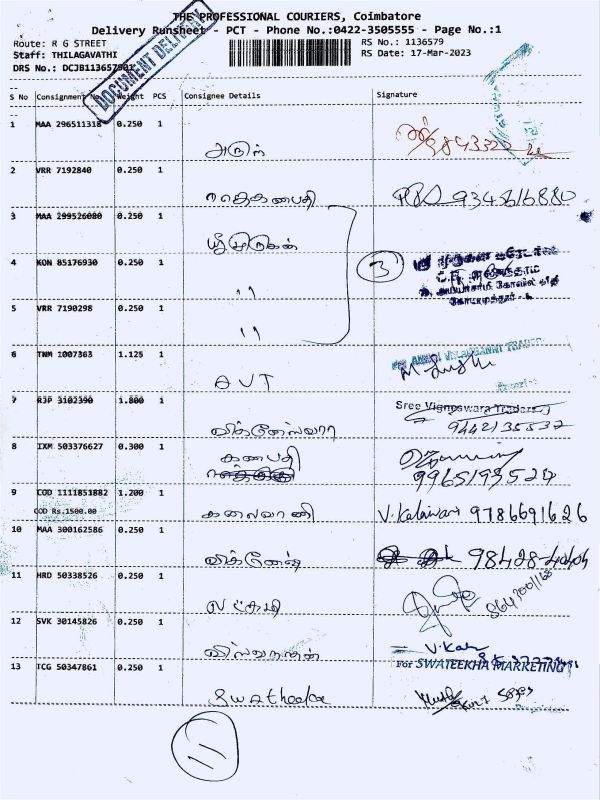 THE PROFESSIONAL COURIERS, Coimbatore
Delivery Runsheet - PCT - Phone No.:0422-3505555 - Page No.:1
Route: R G STREET RS No.: 1136579
Staff: THILAGAVATHI RS Date: 17-Mar-2023
DRS No.: DCJB113657901
DOCUMENT DELIVERY
S No Consignment No Weight PCS Consignee Details Signature
1 MAA 296511318 0.250 1
அருள்
2 VRR 7192840 0.250 1
கணபதி 9345616880
3 MAA 299526080 0.250 1
ஸ்ரீமுருகன்
4 KON 85176930 0.250 1 3
" கோயமுத்தூர்
5 VRR 7190298 0.250 1
"
6 TNM 1007363 1.125 1
AVT
7 RJP 3102390 1.800 1 Sree Vigneswara Traders
விக்னேஸ்வரா 9442135537
8 IXM 503376627 0.300 1
கணபதி 9965193524
9 COD 1111851882 1.200 1
COD Rs.1500.00 கலைவாணி V.Kalaivani 9786691626
10 MAA 300162586 0.250 1
விக்னேஷ் 98428-40404
11 HRD 50338526 0.250 1
லட்சுமி
12 SVK 30145826 0.250 1 V.Kalai
விஸ்வநாதன் For SWATEEKHA MARKETING
13 TCG 50347861 0.250 1
Swatheeka
11